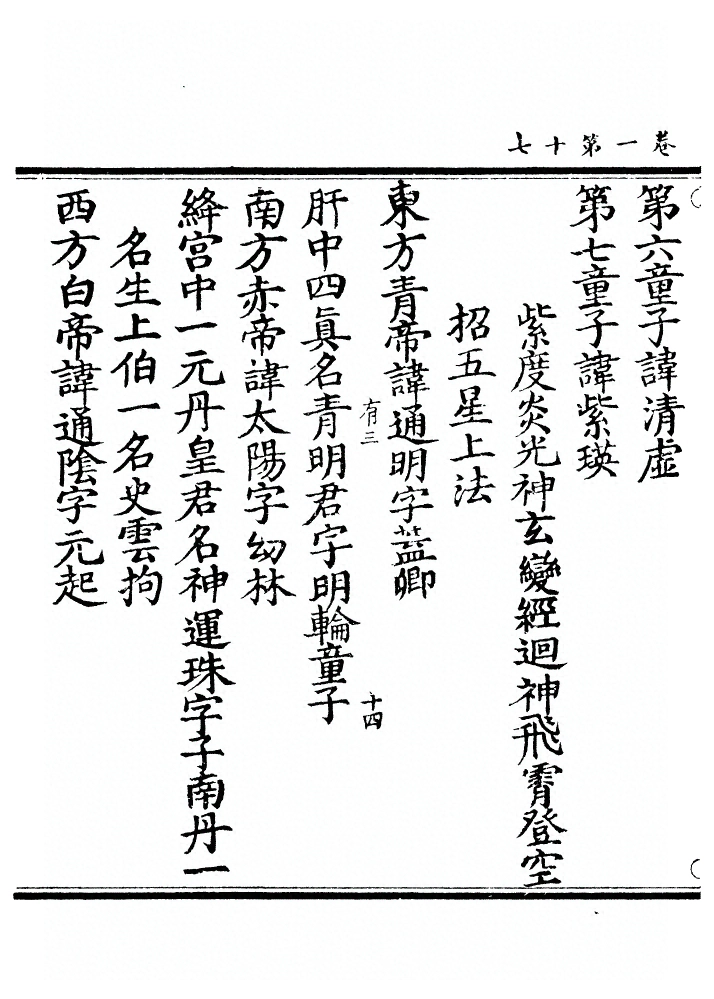 卷一第十七
第六童子諱清虛
第七童子諱紫瑛
紫度炎光神玄變經迴神飛霄登空
招五星上法
東方青帝諱通明字蓋卿
有三
十四
肝中四眞名青明君字明輪童子
南方赤帝諱太陽字幼林
絳宮中一元丹皇君名神運珠字子南丹一
名生上伯一名史雲拘
西方白帝諱通陰字元起